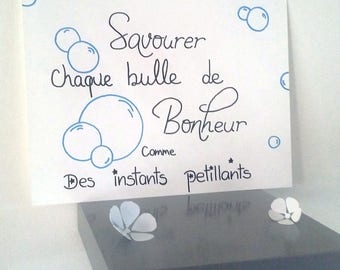 Savourer
Chaque bulle de
Bonheur
Comme
Des instants petillants